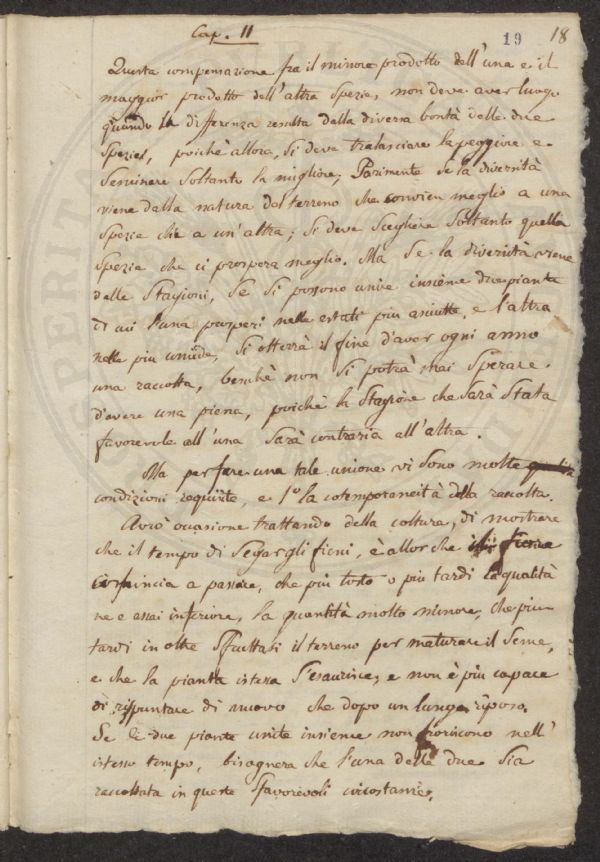 Cap. 11
19 18
Questa compensazione fra il minore prodotto dell'una e il
maggior prodotto dell'altra spezie, non deve aver luogo
quando la differenza resulta dalla diversa bontà delle due
spezie, poichè allora, si deve tralasciare la peggiore e
seminare soltanto la migliore; Parimente se la diversità
viene dalla natura del terreno che convien meglio a una
spezie che a un'altra; si deve scegliere soltanto quella
spezie che ci prospera meglio. Ma se la diversità viene
delle stagioni, se si possono unire insieme due piante
di cui l'una prosperi nelle estati piu asciutte, e l'altra
nelle piu umide, si otterrà il fine d'aver ogni anno
una raccolta, benchè non si potrà mai sperare
d'avere una piena, poichè la stagione che sarà stata
favorevole all'una sarà contraria all'altra.
Ma per fare una tale unione vi sono molte
condizioni requisite, e 1º la cotemporaneità della raccolta.
Avrò occasione trattando della coltura, di mostrare
che il tempo di segar gli fieni, è allor che il fiore
comincia a passare, che più tosto o più tardi la qualità
ne e assai inferiore, la quantità molto minore, che più
tardi in oltre sfruttasi il terreno per maturare il seme,
e che la pianta istessa s'esaurisce, e non è più capace
di rispuntare di nuovo che dopo un lungo riposo.
Se le due piante unite insieme non fioriscono nell'
istesso tempo, bisognera che l'una delle due sia
raccoltata in queste sfavorevoli circostanze.